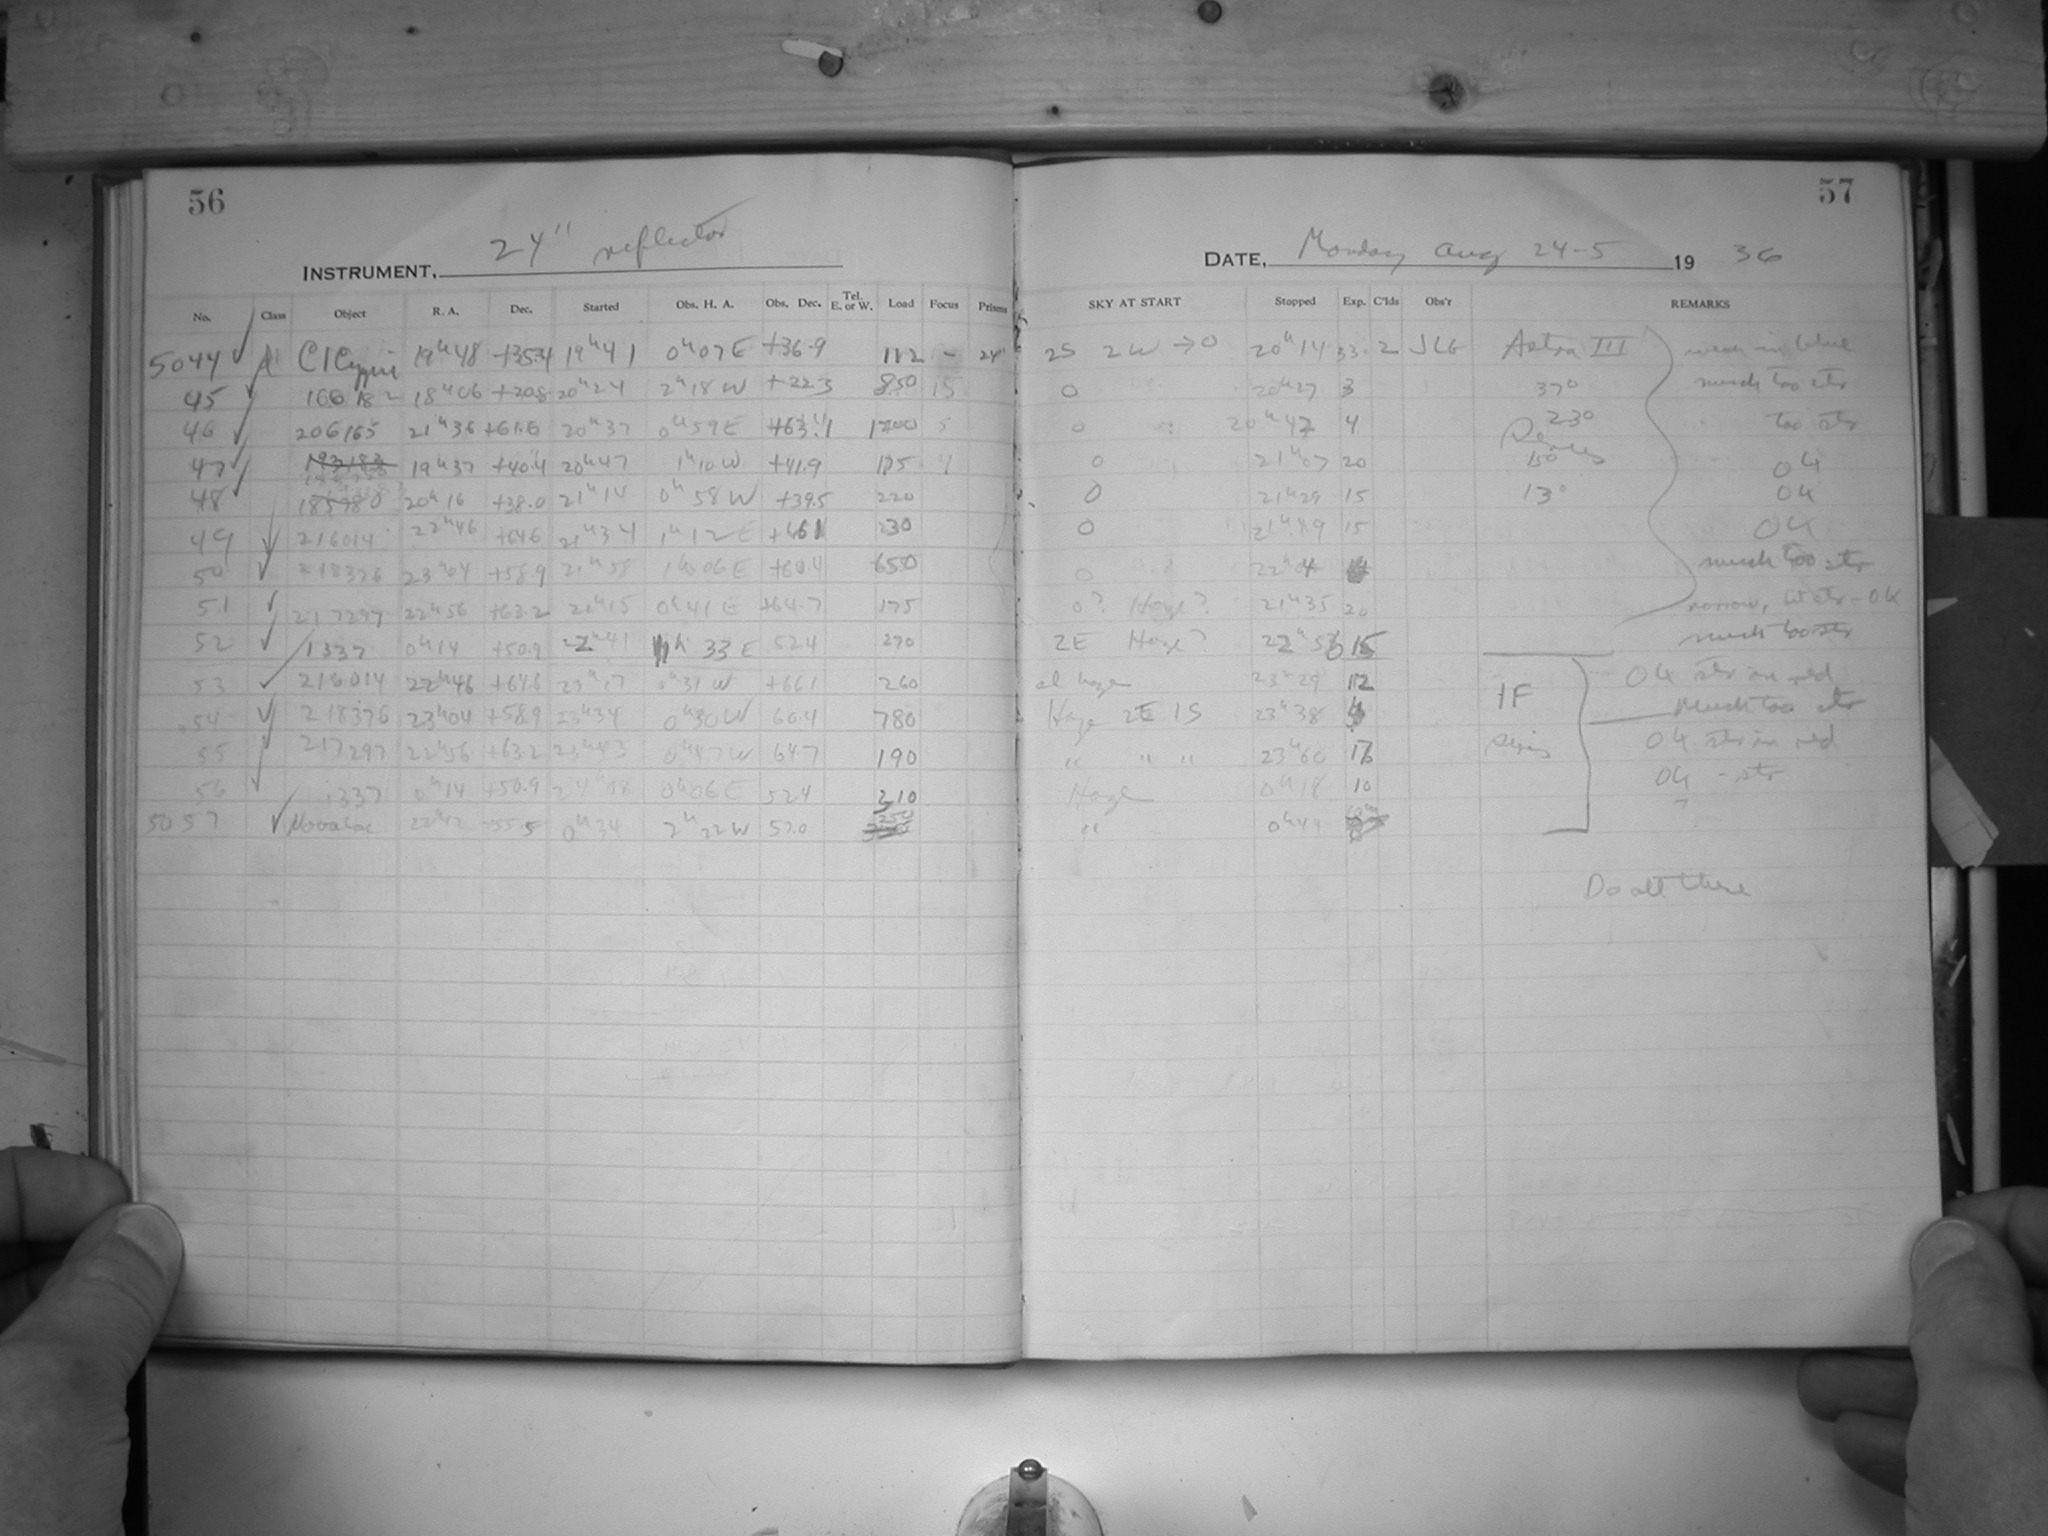 56
57
24" reflector
INSTRUMENT,
DATE, Monday Aug 24-5 19 36
No. Class Object R. A. Dec. Started Obs. H. A. Obs. Dec. Tel. E. or W. Load Focus Prisms SKY AT START Stopped Exp. C'lds Obs'r REMARKS
5044 CI Cygni 19h48 +35.4 19h41 0h07E +36.9 112 - 24" 2S 2W → 0 20h14 33 2 JLG Astra III weak in blue
45 18h06 +20.8 20h24 2h18W +22.3 850 15 0 20h27 3 37° much too str
46 206165 21h36 +61.6 20h37 0h59E +63.1 5 0 4 23° too str
47 19h37 +40.4 20h47 1h10W +41.9 175 0 21h07 20 15° OK
48 20h16 +38.0 21h14 0h58W +39.5 220 0 21h29 15 13° OK
49 216014 22h46 +64.6 21h34 1h12E +66.1 230 0 21h49 15 OK
50 218376 23h04 +58.9 21h58 1h06E +60.4 650 0 22h04 much too str
51 217297 22h56 +63.2 22h15 0h41E +64.7 175 0? Haze? 21h35 20 narrow, str - OK
52 1337 0h14 +50.9 22h41 33E 52.4 270 2E Haze? 22h56 15 much too str
53 216014 22h46 +64.6 23h17 0h31W +66.1 260 haze 23h29 12 OK str in red
54 218376 23h04 +58.9 23h34 0h30W 60.4 780 Haze 2E 1S 23h38 4 1F Much too str
55 217297 22h56 +63.2 23h43 0h47W 64.7 190 " " " 23h60 OK str in red
56 1337 0h14 +50.9 24h08 0h06E 52.4 210 Haze 0h18 10 OK - str
5057 Nova Lac 22h12 55.5 0h34 2h22W 57.0 " 0h44 ?
Do all these